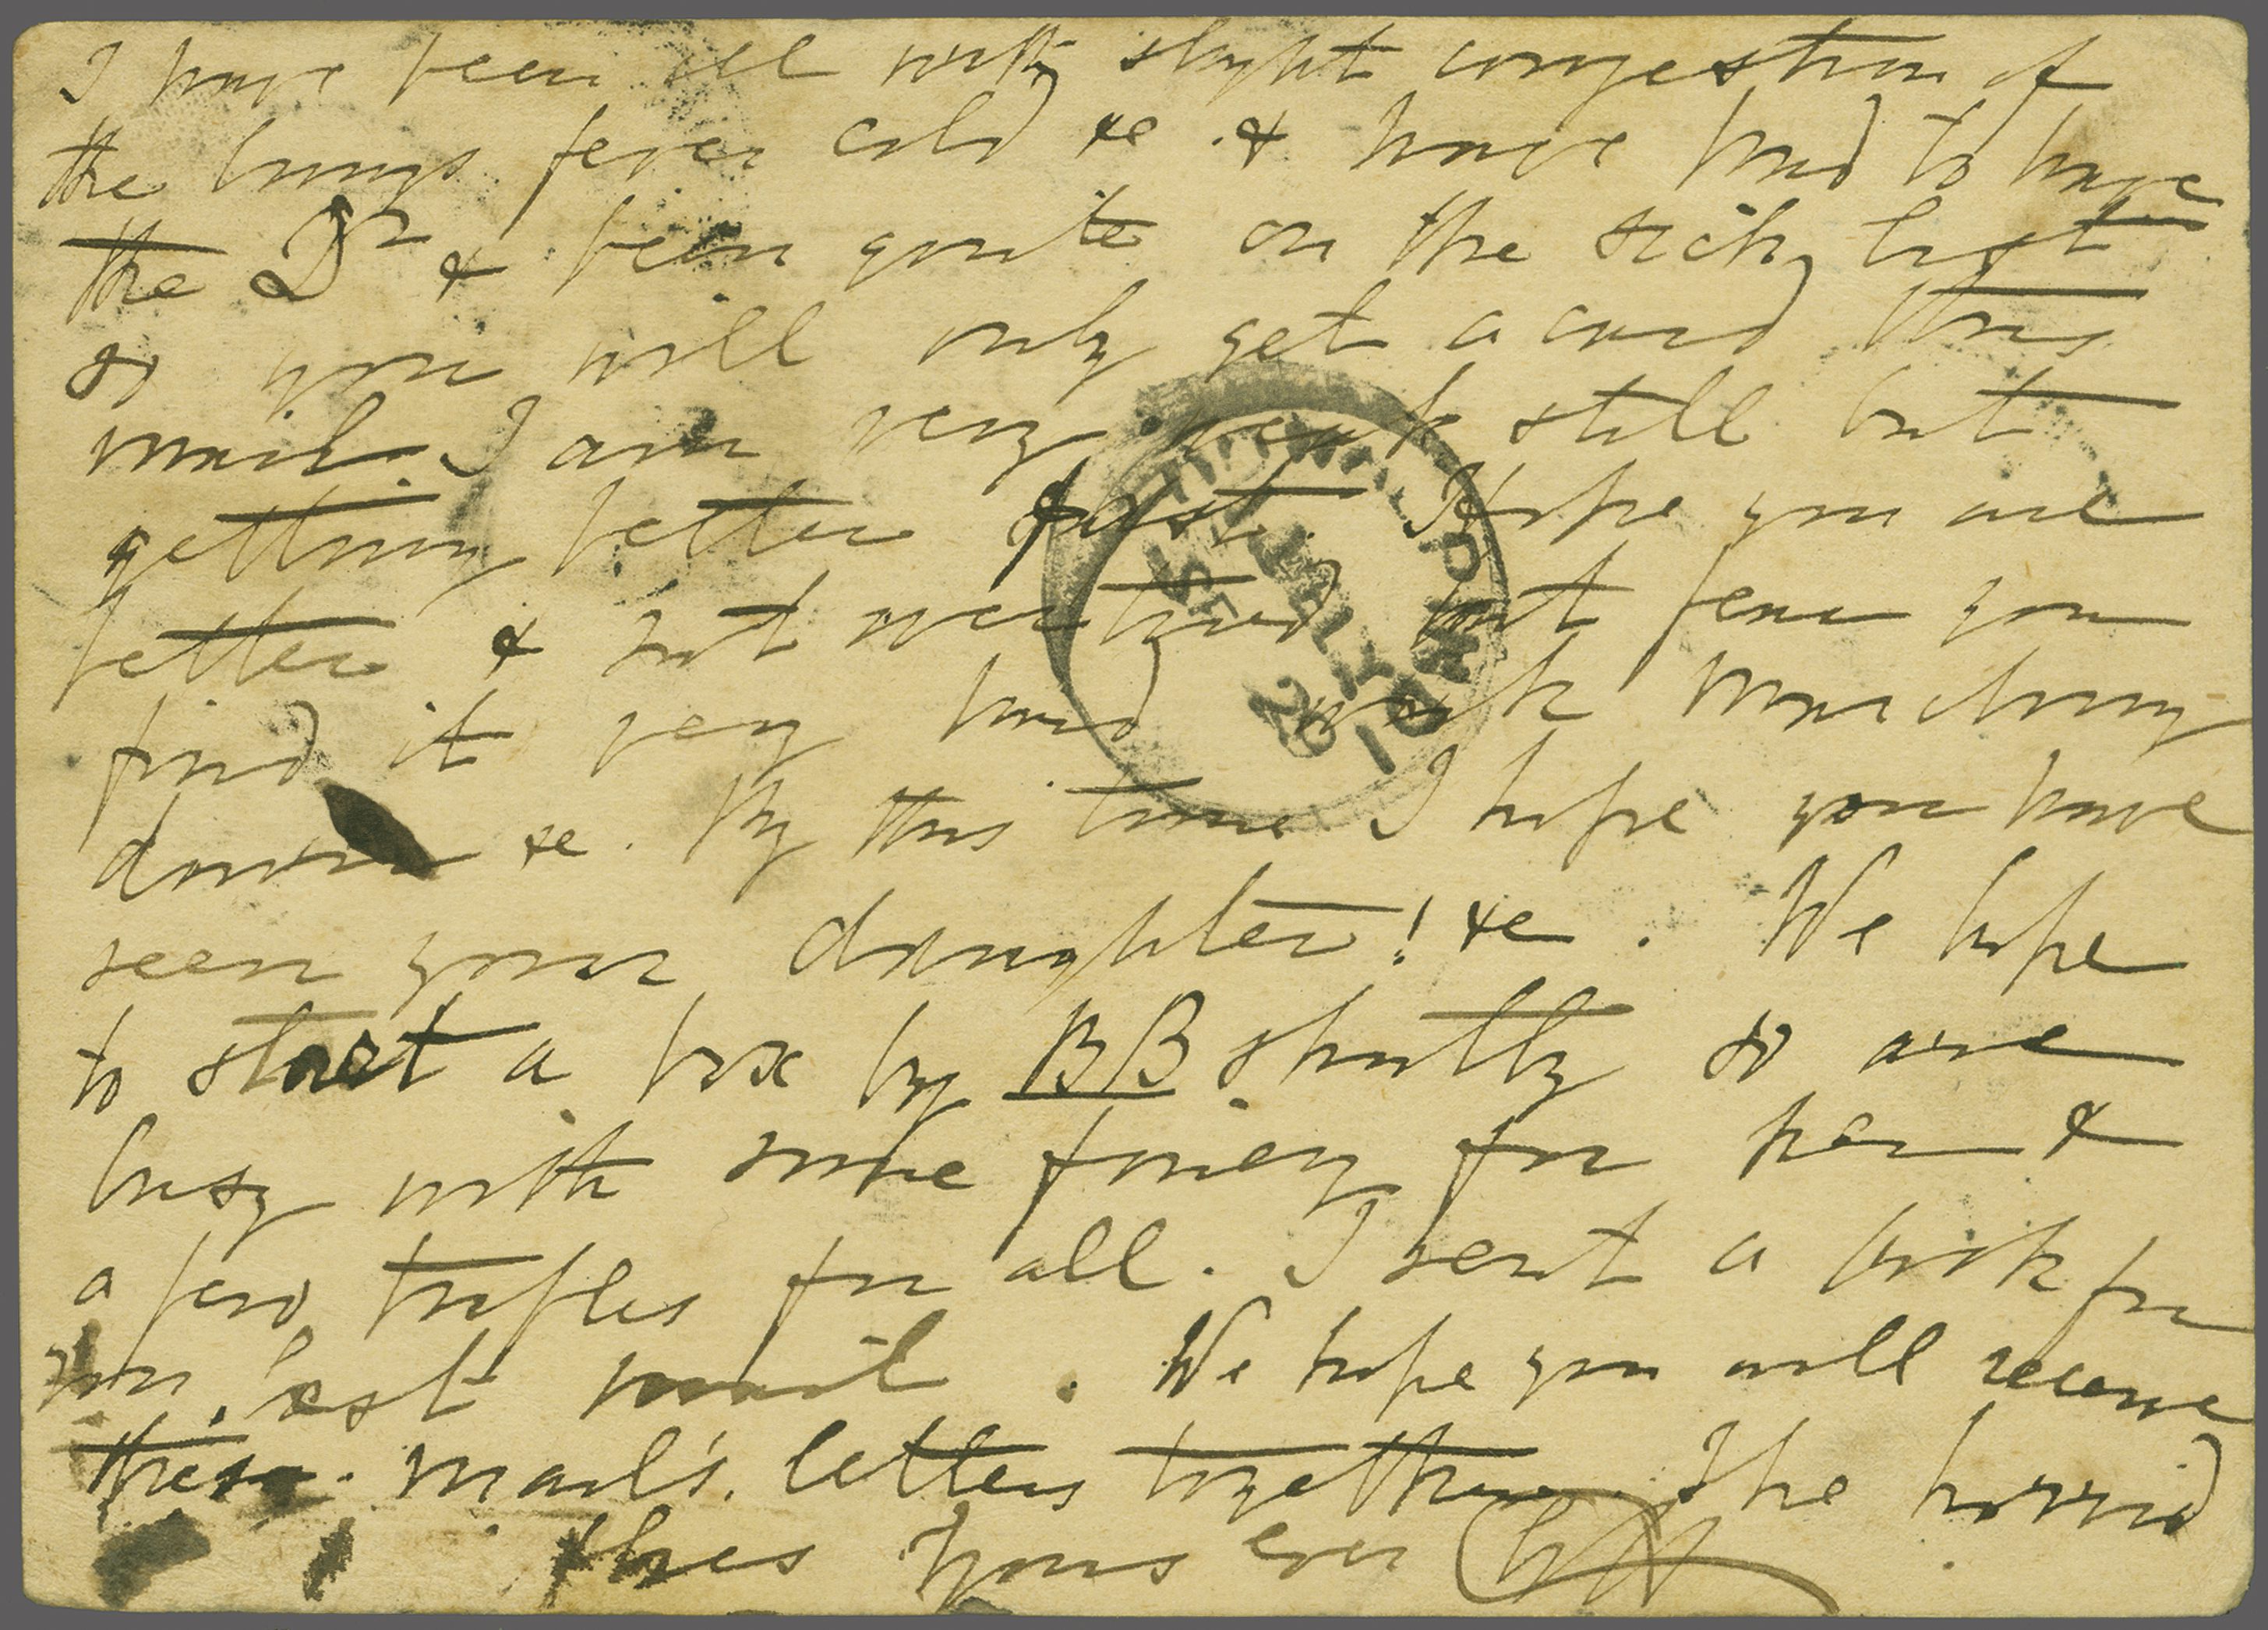 I have been ill with slight congestion of
the lungs fever cold &c. & have had to have
the Dr & been quite on the sick list
so you will only get a card this
mail. I am very weak still but
getting better fast. Hope you are
better & not overtired but fear you
find it very hard work marching
down &c. By this time I hope you have
seen your daughter! &c. We hope
to start a box by BB shortly so are
busy with some finery for her &
a few trifles for all. I sent a book for
you last mail. We hope you will receive
these mail's letters together. The horrid
flies Yours ever